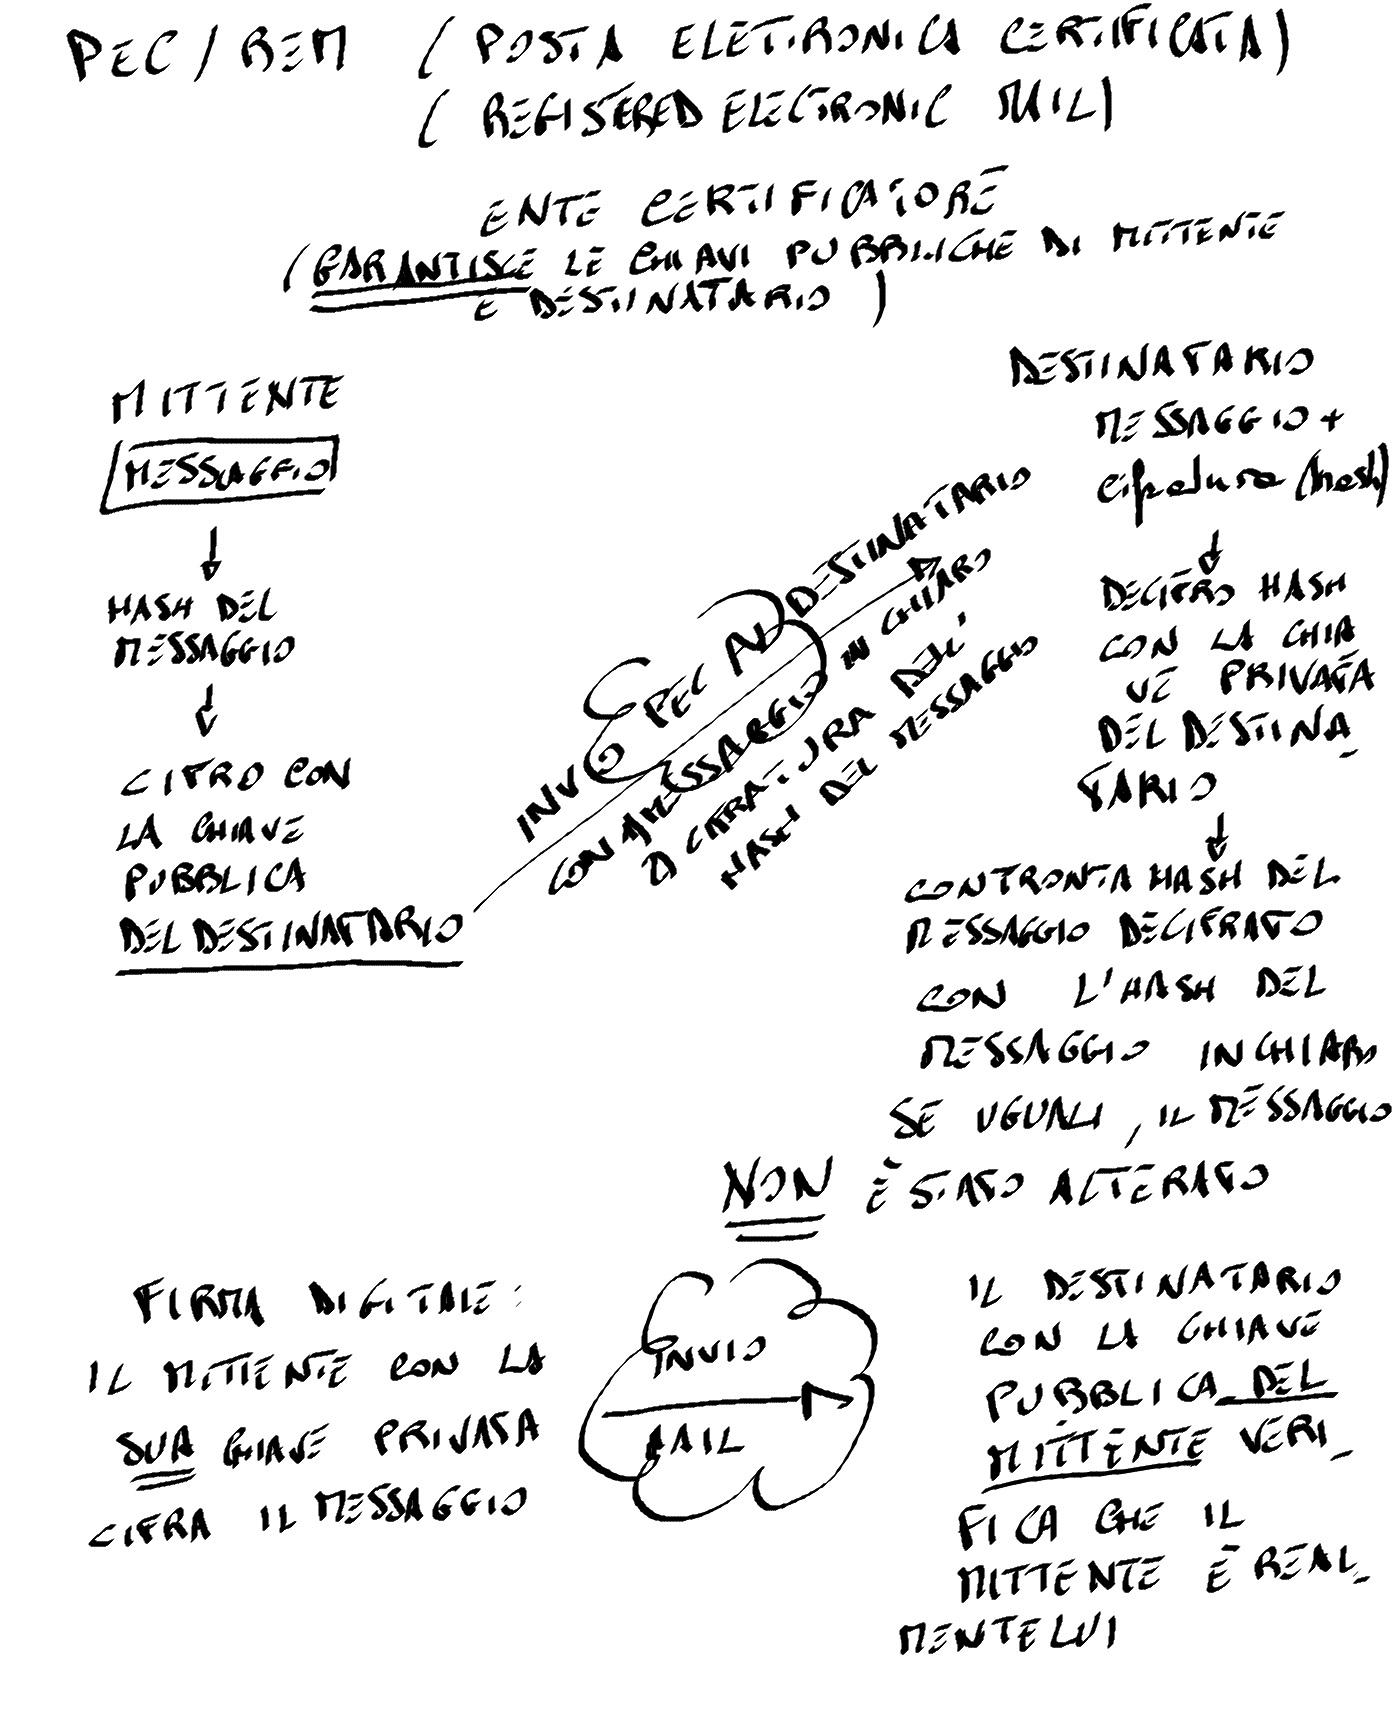 PEC / REM ( POSTA ELETTRONICA CERTIFICATA)
( REGISTERED ELECTRONIC MAIL)
ENTE CERTIFICATORE
(GARANTISCE LE CHIAVI PUBBLICHE DI MITTENTE
E DESTINATARIO )
MITTENTE
MESSAGGIO
↓
HASH DEL
MESSAGGIO
↓
CIFRO CON
LA CHIAVE
PUBBLICA
DEL DESTINATARIO
INVIO PEC AL DESTINATARIO
CON 1) MESSAGGIO IN CHIARO
2) CIFRATURA DELL'
HASH DEL MESSAGGIO
DESTINATARIO
MESSAGGIO +
cifratura (hash)
↓
DECIFRO HASH
CON LA CHIA
VE PRIVATA
DEL DESTINA_
TARIO
↓
CONFRONTA HASH DEL
MESSAGGIO DECIFRATO
CON L'HASH DEL
MESSAGGIO IN CHIARO
SE UGUALI, IL MESSAGGIO
NON È STATO ALTERATO
FIRMA DIGITALE:
IL MITTENTE CON LA
SUA CHIAVE PRIVATA
CIFRA IL MESSAGGIO
INVIO
MAIL
IL DESTINATARIO
CON LA CHIAVE
PUBBLICA DEL
MITTENTE VERI_
FICA CHE IL
MITTENTE È REAL_
MENTE LUI